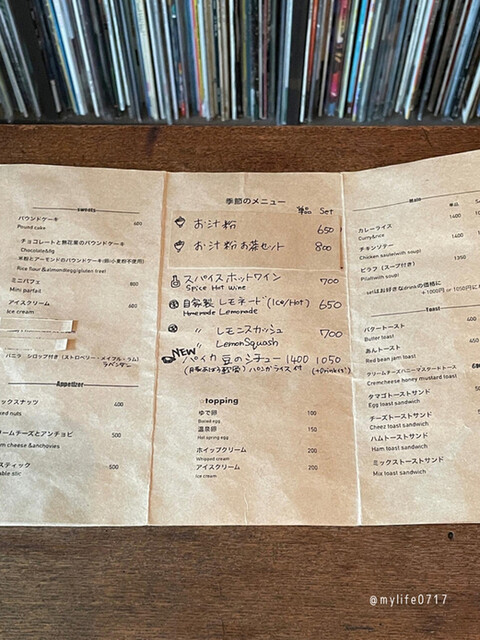 sweets
パウンドケーキ 600
Pound cake
チョコレートと無花果のパウンドケーキ
Chocolate&fig
米粉とアーモンドのパウンドケーキ(卵・小麦粉不使用)
Rice flour &almond(egg/gluten free)
ミニパフェ 800
Mini parfait
アイスクリーム 600
Ice cream
バニラ シロップ付き(ストロベリー・メイプル・ラム)
ラベンダー
Appetizer
ックスナッツ 400
ked nuts
ームチーズとアンチョビ 500
m cheese &anchovies
スティック 500
able stic
季節のメニュー
単品 Set
お汁粉 650
お汁粉お茶セット 800
スパイスホットワイン 700
Spice Hot wine
自家製 レモネード(Ice/Hot) 650
Homemade Lemonade
〃 レモンスカッシュ 700
LemonSquash
NEW
パイカ 豆のシチュー 1400 1050
(+Drinkを!)
topping
ゆで卵 100
Boiled egg
温泉卵 150
Hot spring egg
ホイップクリーム 200
Whipped cream
アイスクリーム 200
Ice cream
単品
カレーライス 1400
Curry&rice
チキンソテー 1400
Chicken saute(with soup)
ピラフ(スープ付き) 1350
Pilaf(with soup)
setはお好きなdrinkの価格に
+1000円 or 1050円に
Toast
バタートースト
Butter toast
あんトースト
Red bean jam toast
クリームチーズハニーマスタードトースト
Cremcheese honey mustard toast
タマゴトーストサンド
Egg toast sandwich
チーズトーストサンド
Cheez toast sandwich
ハムトーストサンド
Ham toast sandwich
ミックストーストサンド
Mix toast sandwich
@mylife0717